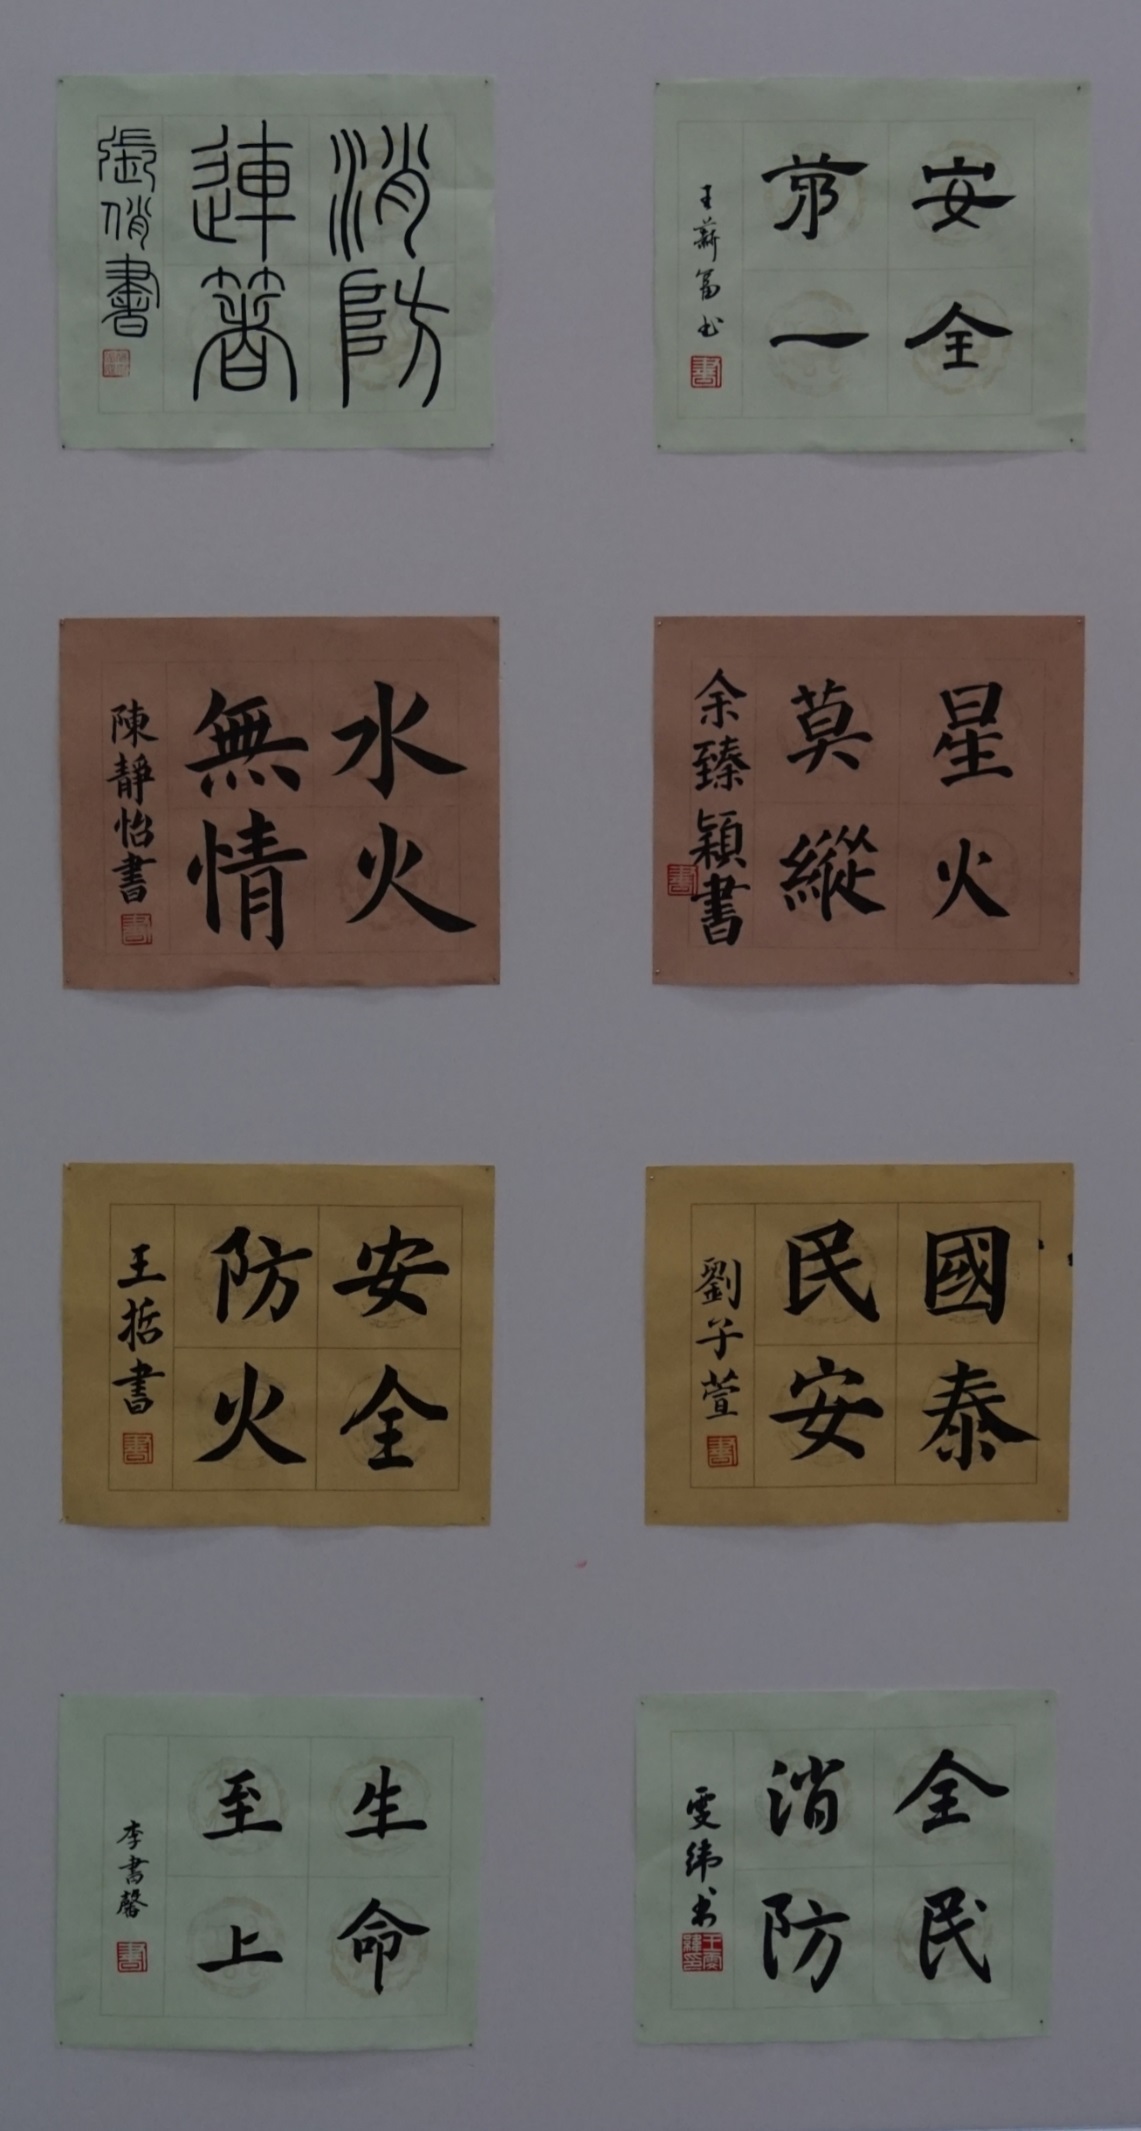 消防
連著
張俏書
安全
第一
書
水火
無情
陳靜怡書
書
星火
莫縱
余臻穎書
書
安全
防火
王哲書
書
國泰
民安
劉子萱
書
生命
至上
李書馨
書
全民
消防
雯緯书